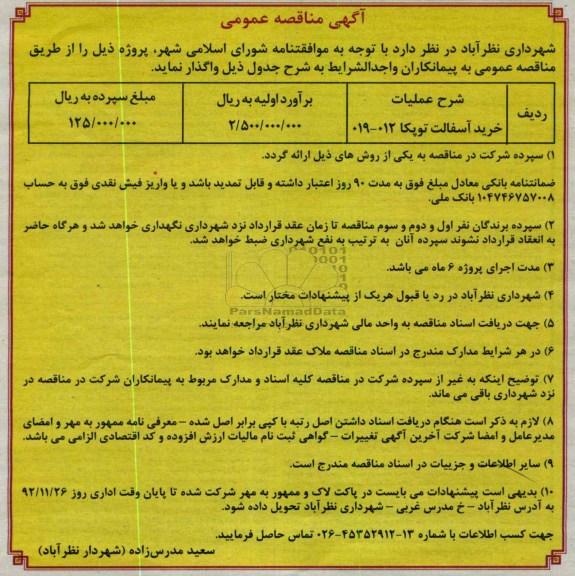 آگهی مناقصه عمومی
شهرداری نظرآباد در نظر دارد با توجه به موافقتنامه شورای اسلامی شهر، پروژه ذیل را از طریق
مناقصه عمومی به پیمانکاران واجدالشرایط به شرح جدول ذیل واگذار نماید.
ردیف
شرح عملیات
برآورد اولیه به ریال
مبلغ سپرده به ریال
خرید آسفالت توپکا ۰۱۲-۰۱۹
۲/۵۰۰/۰۰۰/۰۰۰
۱۲۵/۰۰۰/۰۰۰
۱) سپرده شرکت در مناقصه به یکی از روش های ذیل ارائه گردد.
ضمانتنامه بانکی معادل مبلغ فوق به مدت ۹۰ روز اعتبار داشته و قابل تمدید باشد و یا واریز فیش نقدی فوق به حساب
۱۰۴۷۴۶۷۵۷۰۰۸ بانک ملی.
۲) سپرده برندگان نفر اول و دوم و سوم مناقصه تا زمان عقد قرارداد نزد شهرداری نگهداری خواهد شد و هرگاه حاضر
به انعقاد قرارداد نشوند سپرده آنان به ترتیب به نفع شهرداری ضبط خواهد شد.
۳) مدت اجرای پروژه ۶ ماه می باشد.
۴) شهرداری نظرآباد در رد یا قبول هریک از پیشنهادات مختار است.
ParsNamadData
۵) جهت دریافت اسناد مناقصه به واحد مالی شهرداری نظرآباد مراجعه نمایند.
۶) در هر شرایط مدارک مندرج در اسناد مناقصه ملاک عقد قرارداد خواهد بود.
۷) توضیح اینکه به غیر از سپرده شرکت در مناقصه کلیه اسناد و مدارک مربوط به پیمانکاران شرکت در مناقصه در
نزد شهرداری باقی می ماند.
۸) لازم به ذکر است هنگام دریافت اسناد داشتن اصل رتبه با کپی برابر اصل شده – معرفی نامه ممهور به مهر و امضای
مدیرعامل و امضا شرکت آخرین آگهی تغییرات – گواهی ثبت نام مالیات ارزش افزوده و کد اقتصادی الزامی می باشد.
۹) سایر اطلاعات و جزییات در اسناد مناقصه مندرج است.
۱۰) بدیهی است پیشنهادات می بایست در پاکت لاک و ممهور به مهر شرکت شده تا پایان وقت اداری روز ۹۲/۱۱/۲۶
به آدرس نظرآباد – خ مدرس غربی – شهرداری نظرآباد تحویل داده شود.
جهت کسب اطلاعات با شماره ۱۳-۴۵۳۵۲۹۱۲-۰۲۶ تماس حاصل فرمایید.
سعید مدرس‌زاده (شهردار نظرآباد)